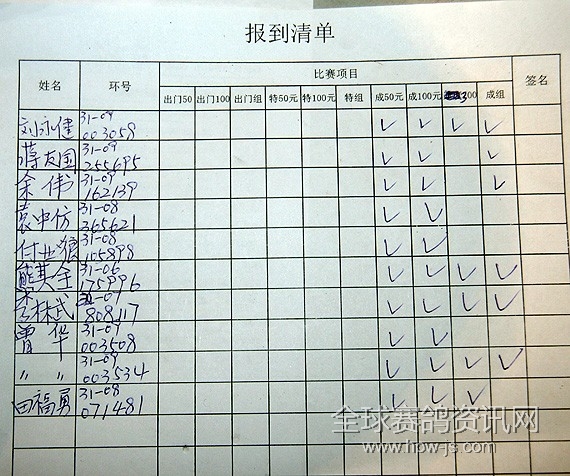 报到清单
姓名 环号 比赛项目 签名
出门50 出门100 出门组 特50元 特100元 特组 成50元 成100元 200 成组
刘永健 31-09 003059 ✓ ✓ ✓ ✓
蒋友国 31-09 255695 ✓ ✓ ✓
余伟 31-09 162139 ✓ ✓ ✓
袁中仿 31-08 365621 ✓ ✓
31-08 105898 ✓ ✓
熊其全 31-06 175996 ✓ ✓ ✓ ✓
李林武 -09 808117 ✓ ✓ ✓ ✓
曾华 31-09 003508 ✓ ✓
〃 〃 31-09 003534 ✓ ✓ ✓ ✓
田福勇 31-08 071481 ✓ ✓ ✓
全球赛鸽资讯网
www.how-js.com